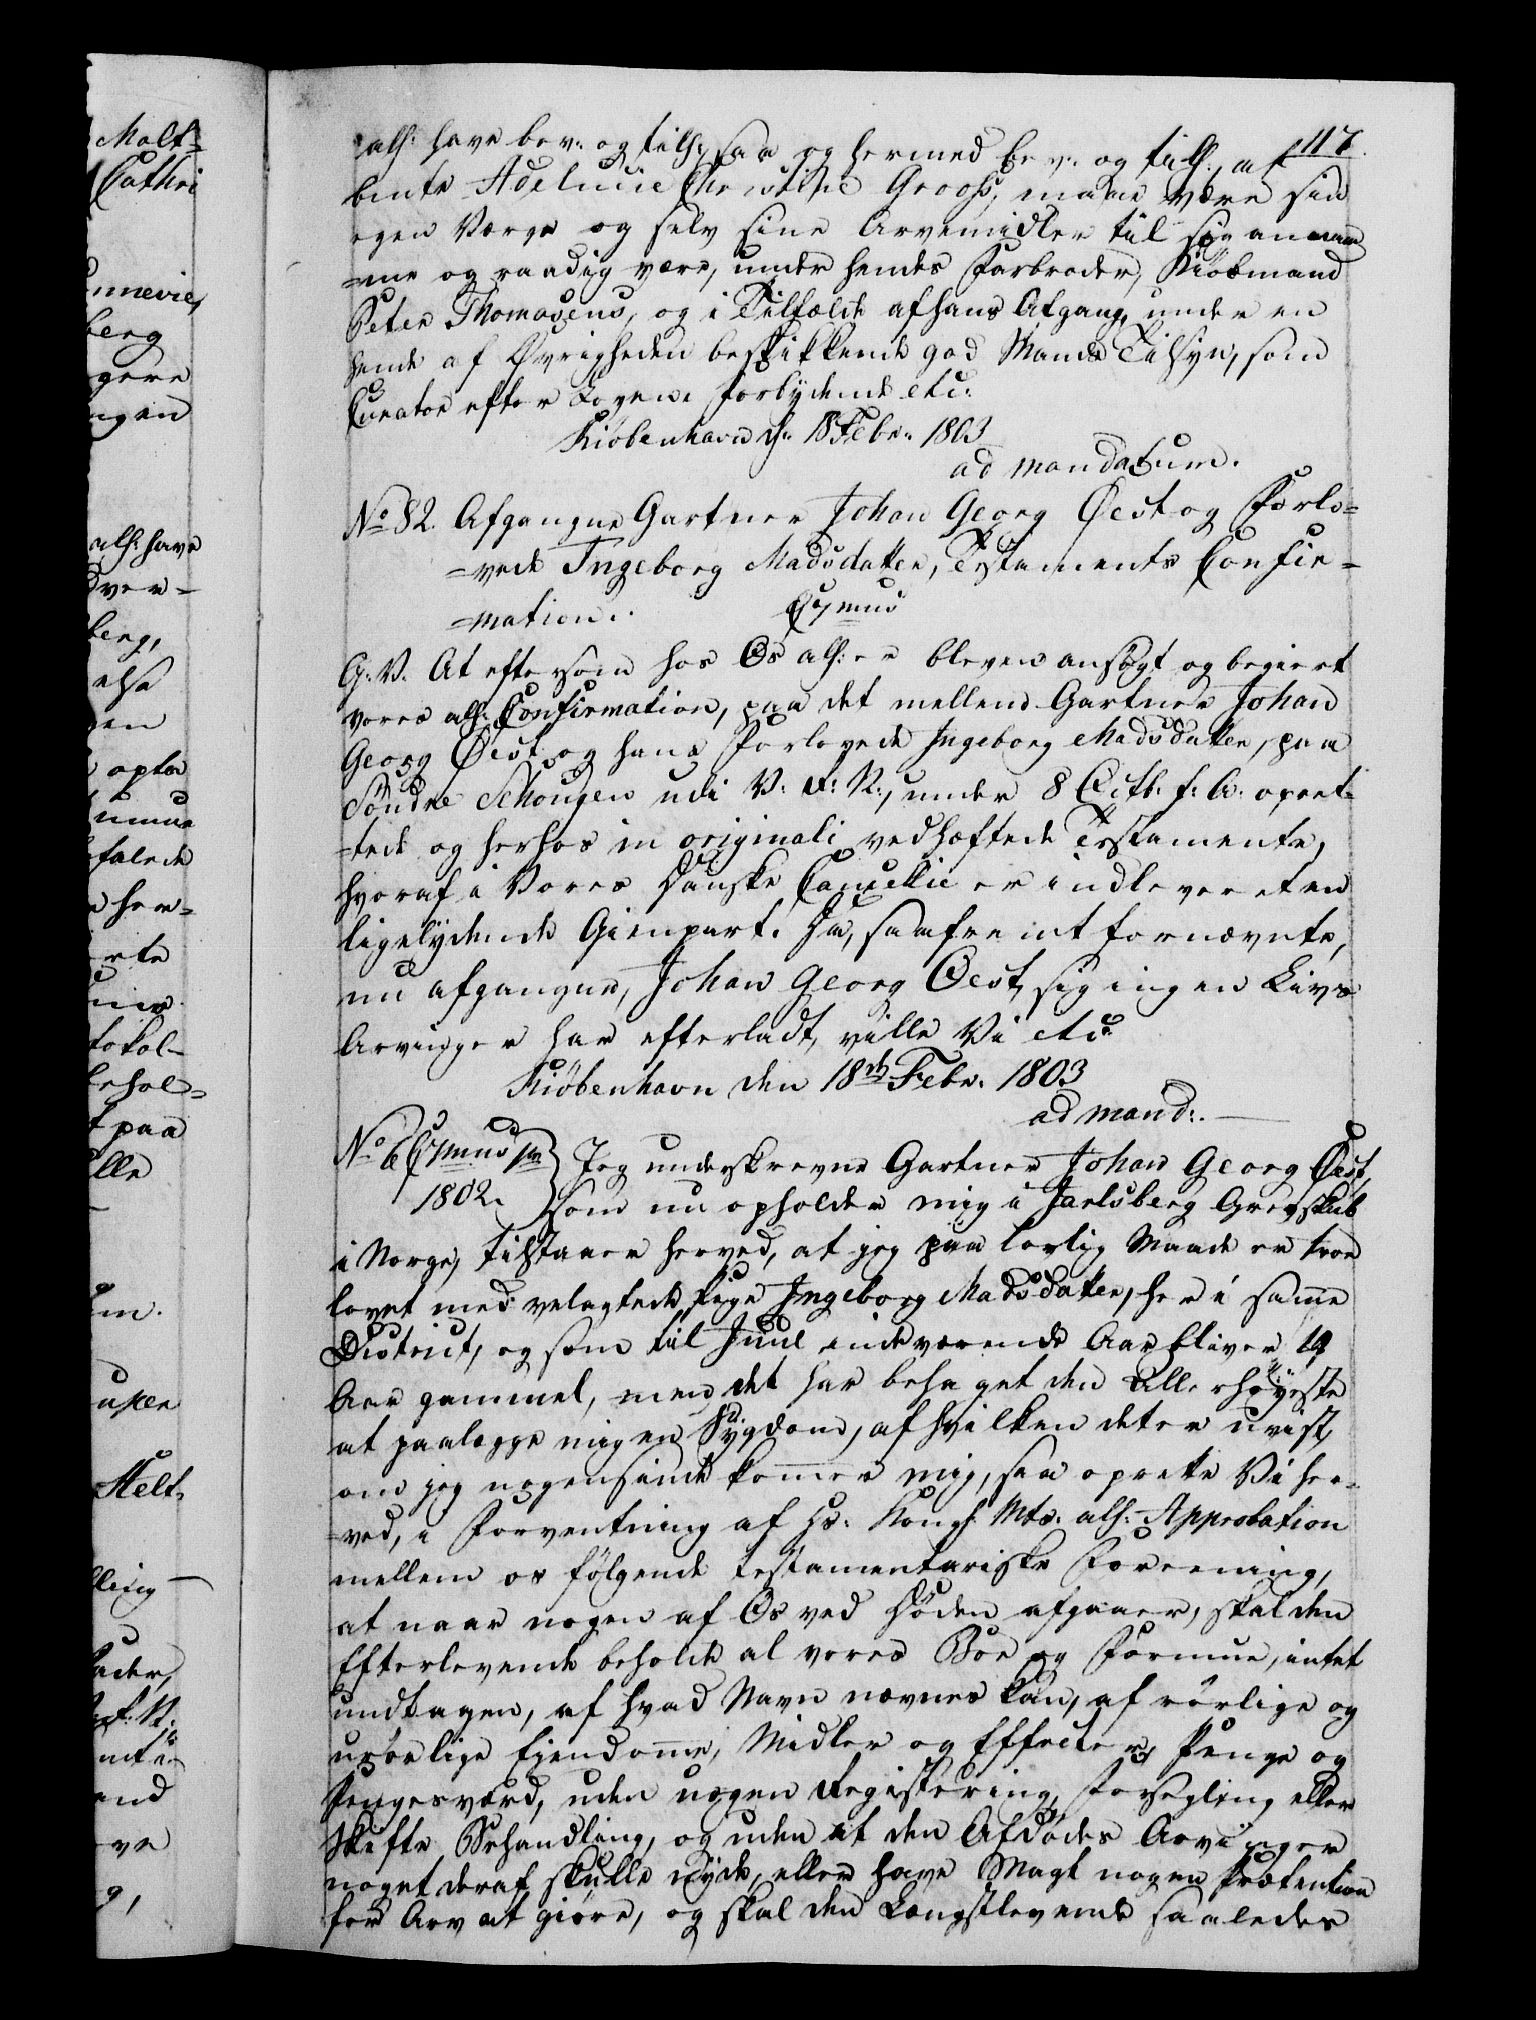 117.
alh: have bev: og tilh:, saa og hermed bev: og tilh:, at
bente Adelucie Christine Grooss, maae være sin
egen Værge og selv sine Arvemidler til sig anam¬
=me og raadig være, under hendes Farbroder, Kiöbmand
Peter Thomasens, og i Tilfælde af hans Afgang, under en
hende af Øvrigheden beskikkende god Mands Tilsyn, som
Curator efter Lovene. Forbydende etc:
Kiöbenhavn d: 18 Febr: 1803
ad mandatum.
No 82. Afgangne Gartner Johan Georg Oest og Forlo=
=vede Ingeborg Madsdatter, Testaments Confir=
=mation.
G: V. At eftersom hos Os alh: er bleven ansøgt og begiert
vores alh: Confirmation, paa det mellem Gartner Johan
Georg Oest og hans Forlovede Ingeborg Madsdatter, paa
Söndre Schougen udi V: R: N:, under 8 Octb: f: A: opret=
=tede og herhos in originali vedhæftede Testamente,
hvoraf i Vores Danske Cancellie er indleveret en
ligelydende Gienpart. Da, saafremt fornævnte,
nu afgangne, Johan Georg Oest, sig ingen Livs
Arvinger har efterladt, ville Vi etc:
Kiöbenhavn den 18de Febr: 1803
ad mand:.
No 6 1802. Jeg underskrevne Gartner Johan Georg Oest,
som nu opholder mig i Jarlsberg Grevskab
i Norge, tilstaaer herved, at jeg paa lovlig Maade er troe
lovet med velagtede Pige Ingeborg Madsdatter, her i samme
District, og som til Juul indeværende Aar bliver 19
Aar gammel, men det har behaget den Allerhöyeste
at paalægge mig en Sygdom, af hvilken det er uvist,
om jeg nogensinde kommer mig, saa oprette Vi her=
=ved, i Forventning af Hs: Kongl: Mts: alh: Approbation
mellem os fölgende testamentariske Foreening,
at naar nogen af Os ved Döden afgaaer, skal den
Efterlevende beholde al vores Boe og Formue, intet
undtagen, af hvad Navn nævnes kan, af rörlige og
urörlige Ejendomme, Midler og Effecter, Penge og
Pengesværd, uden nogen Registering, Forsegling eller
Skifte Behandling, og uden at den Afdødes Arvinger
noget deraf skulle nyde, eller have Magt nogen Prætention
for Arv at giöre, og skal den Længstlevende saaledes
Malt=
Cathri
berg
alh: have
berg,
opta
umua
falede
her=
rte
tokol-
behol=
paa
lle
Stelt,
lling
and